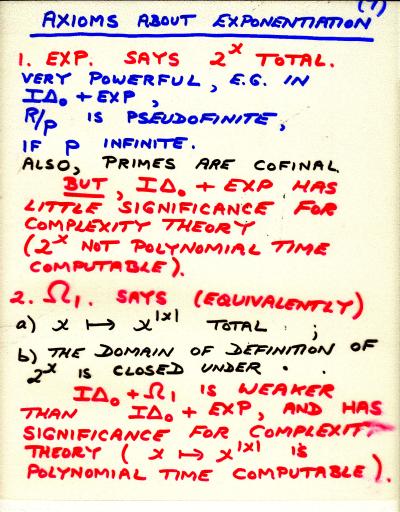 (7)
AXIOMS ABOUT EXPONENTIATION
1. EXP. SAYS 2^x TOTAL.
VERY POWERFUL, E.G. IN
IΔ₀ + EXP,
R/p IS PSEUDOFINITE,
IF P INFINITE.
ALSO, PRIMES ARE COFINAL
BUT, IΔ₀ + EXP HAS
LITTLE SIGNIFICANCE FOR
COMPLEXITY THEORY
(2^x NOT POLYNOMIAL TIME
COMPUTABLE).
2. Ω₁. SAYS (EQUIVALENTLY)
a) x ↦ x^|x| TOTAL ;
b) THE DOMAIN OF DEFINITION OF
2^x IS CLOSED UNDER · .
IΔ₀ + Ω₁ IS WEAKER
THAN IΔ₀ + EXP, AND HAS
SIGNIFICANCE FOR COMPLEXITY
THEORY ( x ↦ x^|x| IS
POLYNOMIAL TIME COMPUTABLE).